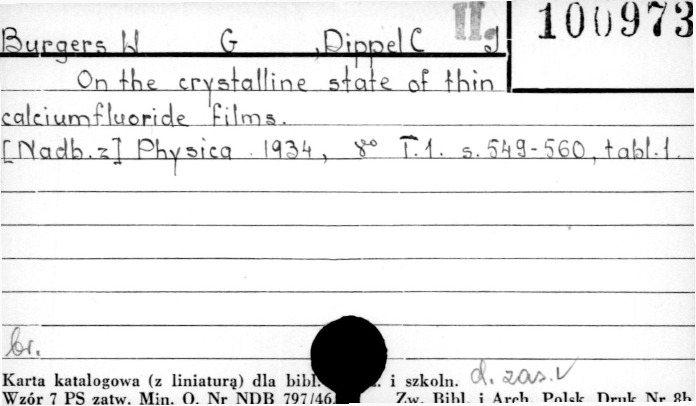 II. 100973
Burgers W G, Dippel C J
On the crystalline state of thin
calciumfluoride films.
[Nadb.z] Physica. 1934, 8° T.1. s.549-560, tabl.1.
br.
Karta katalogowa (z liniaturą) dla bibl. i szkoln. d. zas. V
Wzór 7 PS zatw. Min. O. Nr NDB 797/46. Zw. Bibl. i Arch. Polsk. Druk Nr 8b